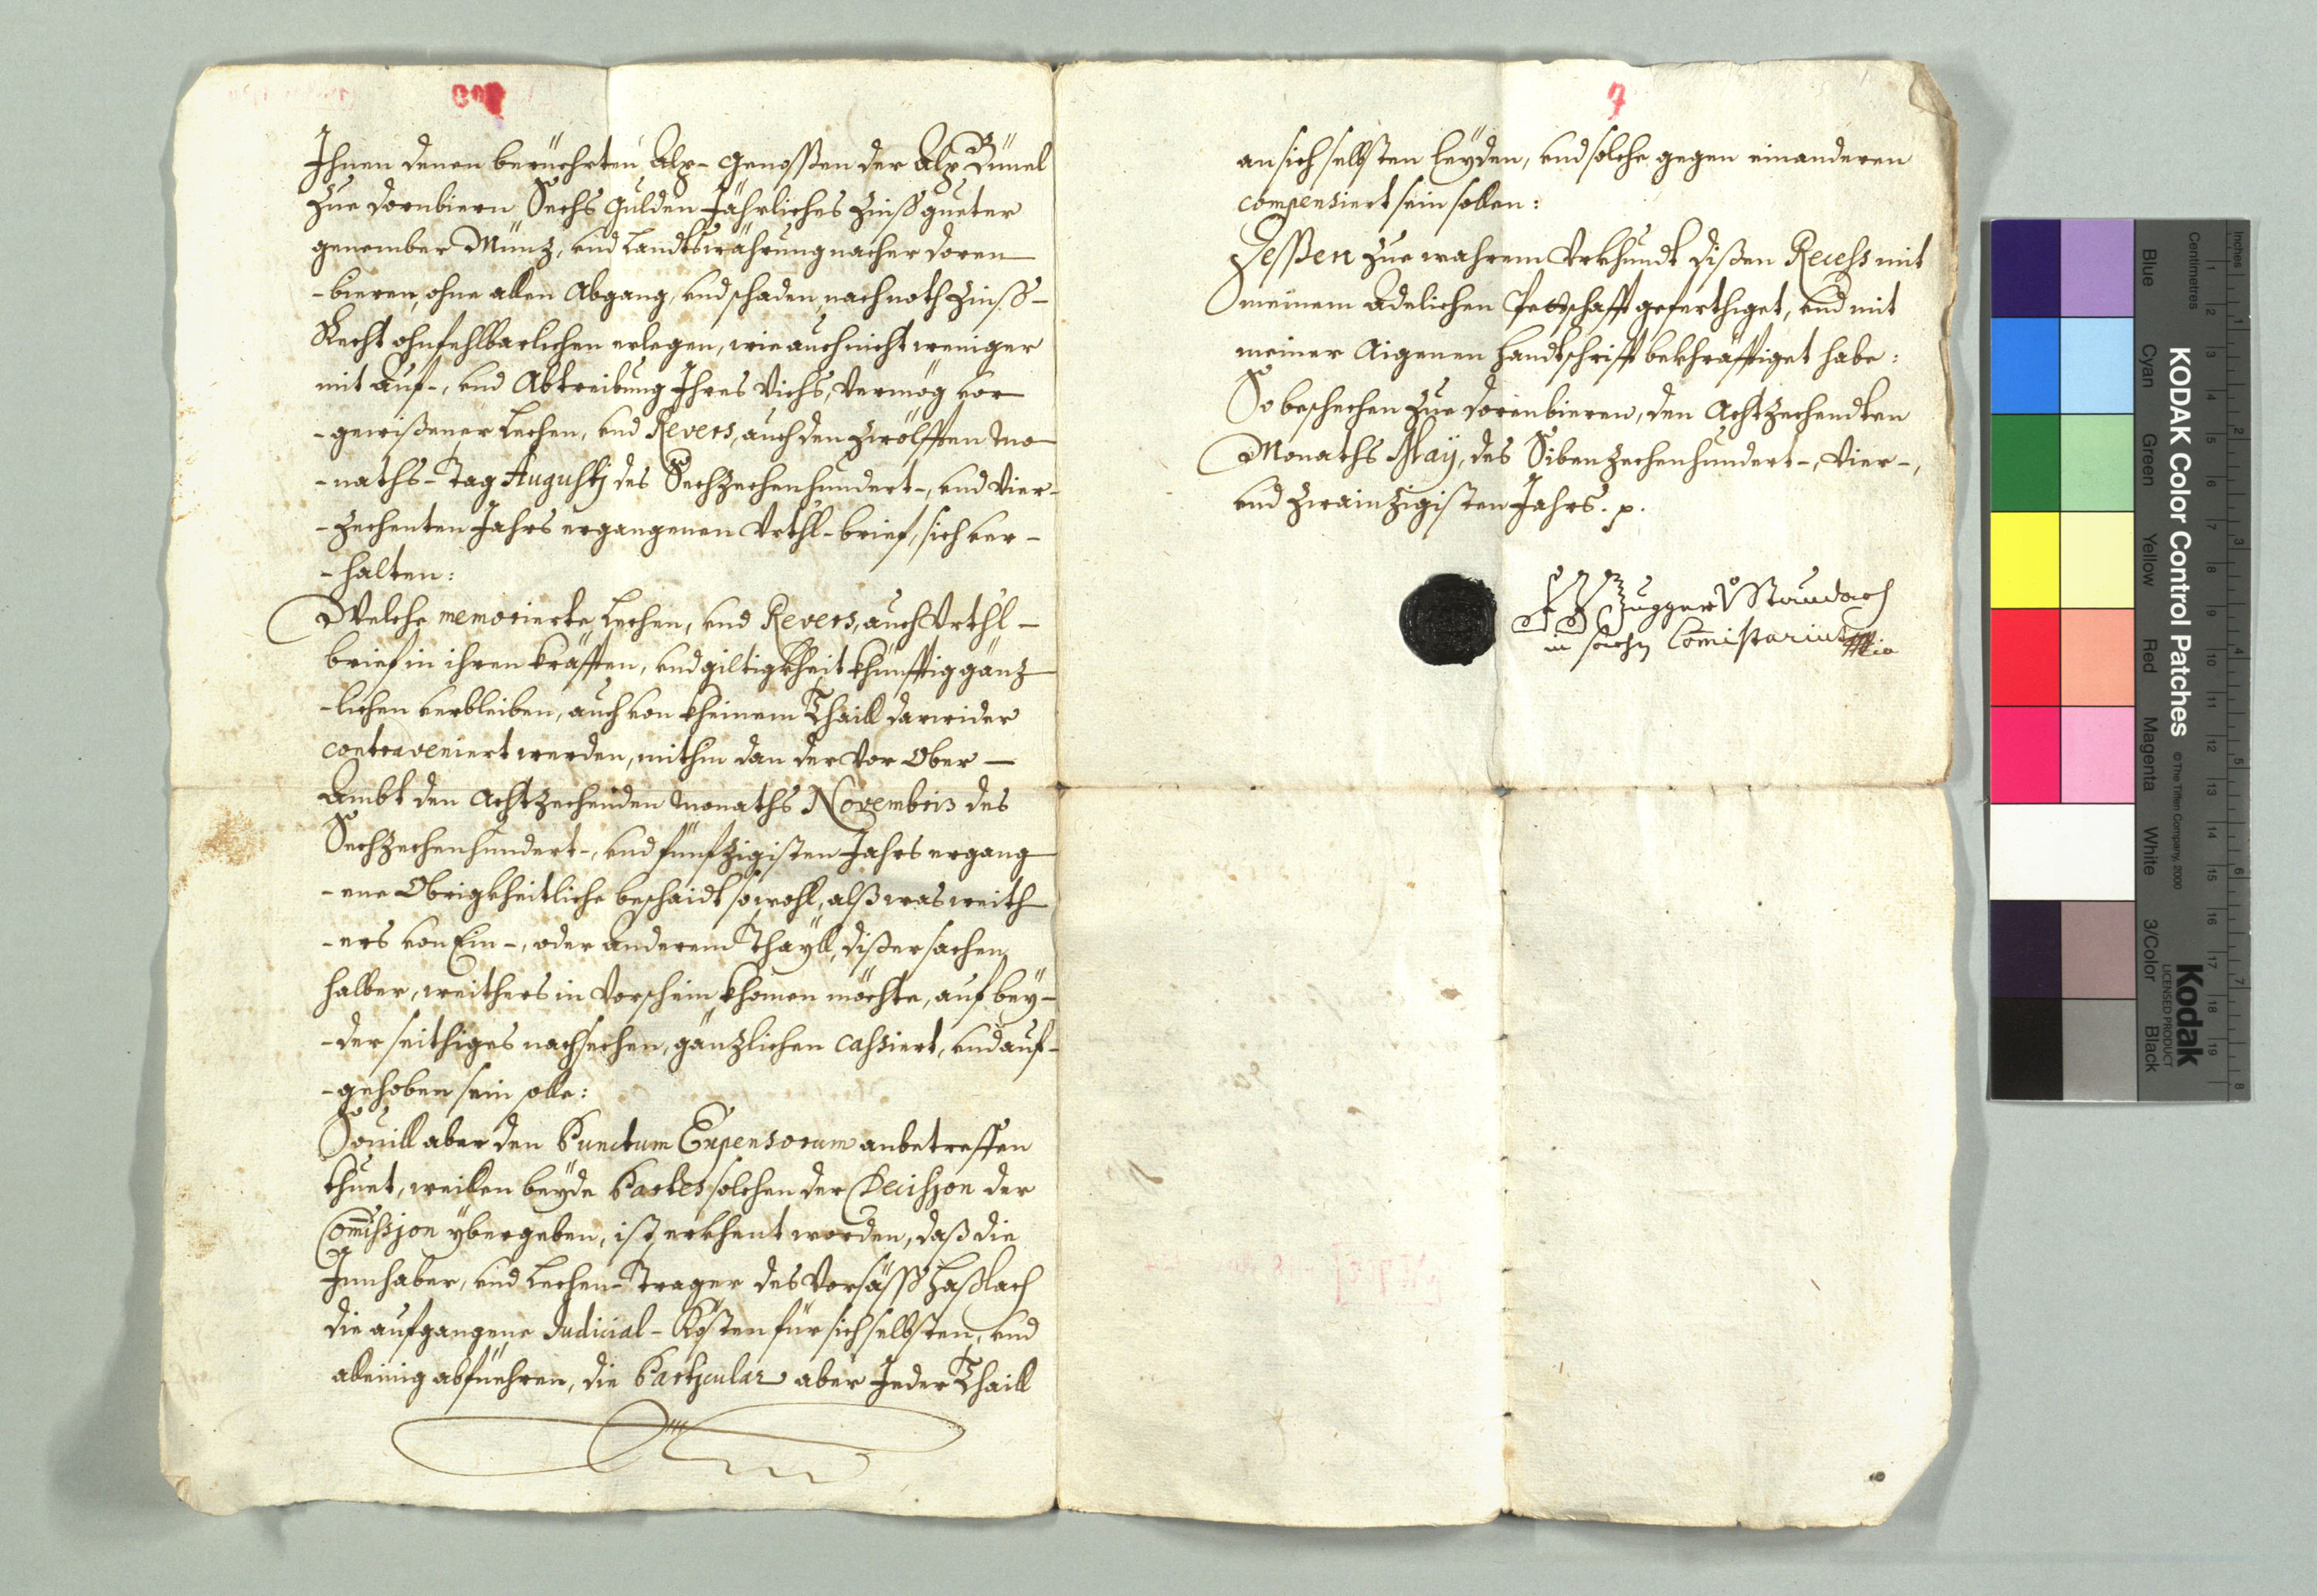 Ihnen denen berüehrten Alp-Genoßen der Alp Bünel
zue Dornbiern Sechs Gulden Jährliches Zinß gueter
genember Münz, vnd Landtswährung nacher Doren-
-bieren, ohne allen Abgang, vnd schaden, nach noth Zinß-
Recht ohnfehlbarlichen erlegen, wie auch nicht weniger
mit Auf-, vnd Abtreibung Ihres Vichs, Vermög vor
-gewißener Lechen, vnd Revers, auch den zwölfften Mo
-naths-Tag Augusti des Sechzechenhundert-, vnd Vier-
-zechenten Jahrs ergangenen Vrthl-brief, sich ver-
-halten:
Welche memorierte Lechen, vnd Revers, auch Vrthl-
brief in ihren kräfften, vnd giltigkheit khünfftig gänz
-lichen verbleiben, auch von kheinem Thaill darwider
contraveniert werden, mithin dan der Vor Ober-
Ambt den Achtzechenden Monaths Novembris des
Sechzechenhundert-, vnd fünfzigisten Jahrs ergang
-ene Obrigkheitliche beschaidt sowohl, alß was weith
-ers von Ein-, oder Anderem Thayll, dißer sachen
halber, weithers in Vorschein khomen möchte, auf bey-
-der seithiges nachsechen, gänzlichen cassiert, vnd auf-
-gehoben sein solle:
Souill aber den Punctum Expensorum anbetreffen
thuet, weillen beyde Partes solchen der Decission der
Comission ybergeben, ist erkhent worden, daß die
Innhaber, vnd Lechen-Trager des Vorsäß Haßlach
die aufgangene Judicial-Kösten für sich selbsten, vnd
alleinig abfüehren, die Particular aber Jeder Thaill
7
an sich selbsten leyden, vnd solche gegen einanderen
compensiert sein sollen:
Deßen zue wahrem Vrkhundt dißen Recess mit
meinem Adelichen Pettschafft geferthiget, vnd mit
meiner Aigenen Handtschrifft bekhräfftiget habe:
So beschechen zue Dorenbieren, den Achtzechendten
Monaths May, des Sibenzechenhundert-, Vier-,
vnd zwainzigisten Jahrs. p.
Zugger V Staudach
in sachen Comissarius